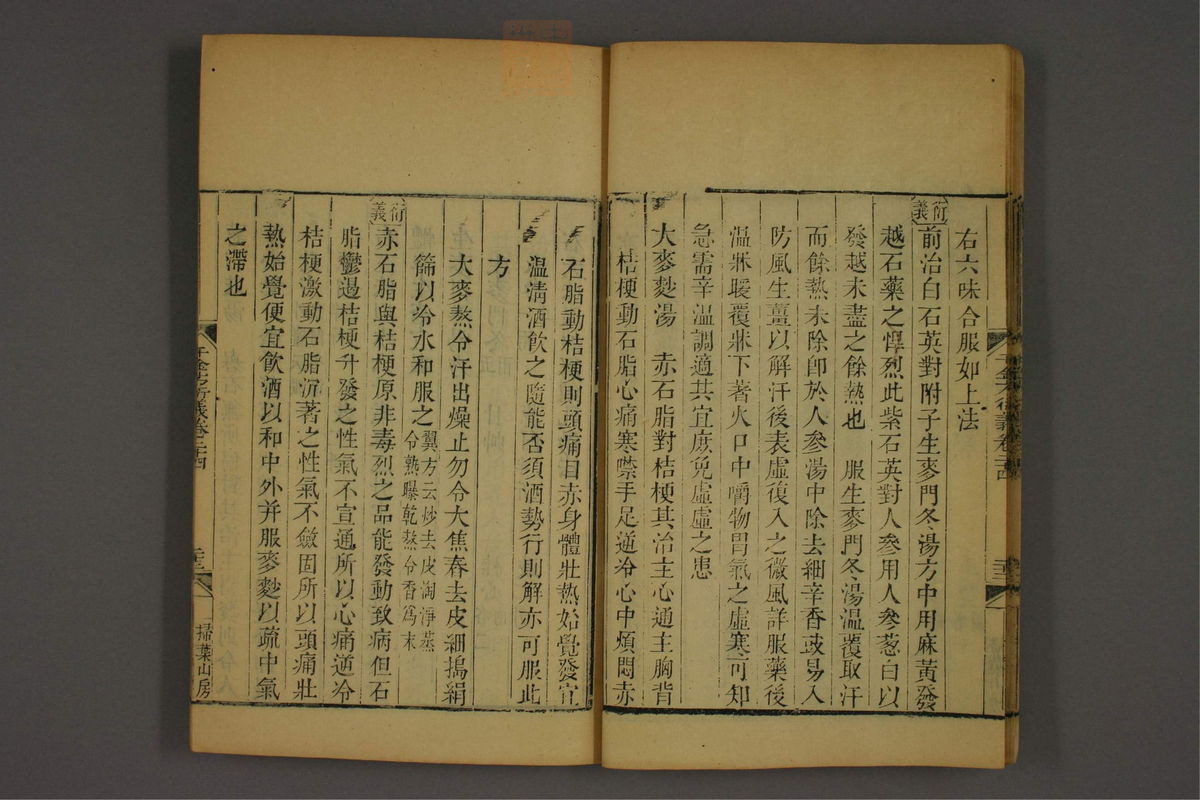 右六味合服如上法
衍義
前治白石英對附子生麥門冬湯方中用麻黃發
越石藥之悍烈此紫石英對人參用人參葱白以
發越未盡之餘熱也　服生麥門冬湯溫覆取汗
而餘熱未除卽於人參湯中除去細辛香豉易入
防風生薑以解汗後表虛復入之微風詳服藥後
溫牀暖覆牀下著火口中嚼物胃氣之虛寒可知
急需辛溫調適其宜庶免虛虛之患
大麥麨湯　赤石脂對桔梗其治主心通主胸背
桔梗動石脂心痛寒噤手足逆冷心中煩悶赤
石脂動桔梗則頭痛目赤身體壯熱始覺發宜
溫清酒飲之隨能否須酒勢行則解亦可服此
方
大麥熬令汗出燥止勿令大焦舂去皮細搗絹
篩以冷水和服之翼方云炒去皮淘淨蒸
令熟曝乾熬令香爲末
衍義
赤石脂與桔梗原非毒烈之品能發動致病但石
脂鬱遏桔梗升發之性氣不宣通所以心痛逆冷
桔梗激動石脂沉著之性氣不斂固所以頭痛壯
熱始覺便宜飲酒以和中外并服麥麨以疏中氣
之滯也
千金方衍義卷二十四
掃葉山房